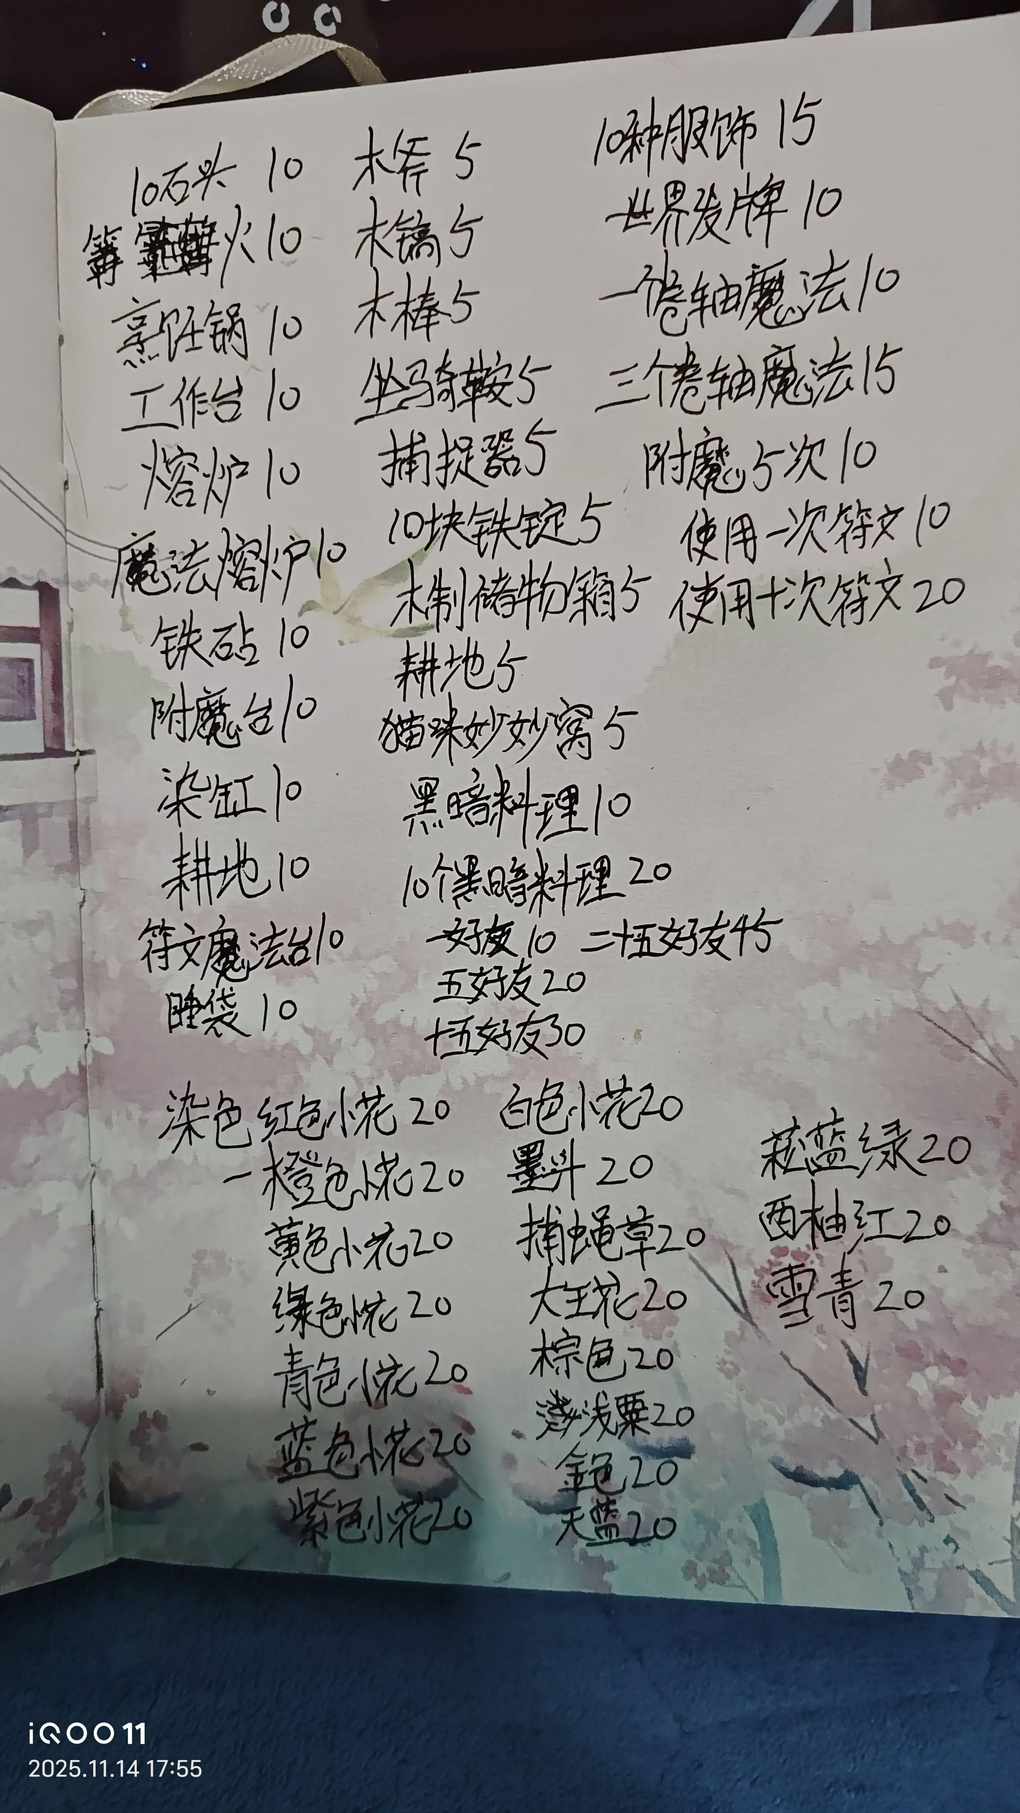 10石头 10
篝火 10
烹饪锅 10
工作台 10
熔炉 10
魔法熔炉10
铁砧 10
附魔台10
染缸10
耕地10
符文魔法台10
睡袋 10
木斧 5
木镐5
木棒5
坐骑鞍5
捕捉器5
10块铁锭5
木制储物箱5
耕地5
猫咪妙妙窝5
黑暗料理10
10个黑暗料理20
一好友10 二十五好友45
五好友20
十五好友30
10种服饰 15
世界发牌10
一个卷轴魔法10
三个卷轴魔法15
附魔5次10
使用一次符文10
使用十次符文20
染色 红色小花 20
一橙色小花20
黄色小花20
绿色小花20
青色小花20
蓝色小花20
紫色小花20
白色小花20
墨斗 20
捕蝇草20
大王花20
棕色20
浅栗20
金色20
天蓝20
菘蓝绿20
西柚红20
雪青20
iQOO 11
2025.11.14 17:55